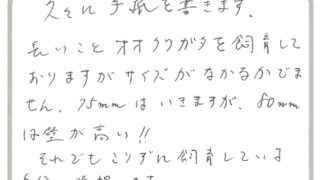 久々に手紙を書きます.
長いことオオクワガタを飼育して
おりますがサイズがなかなかでま
せん. 75mmはいきますが、80mm
は壁が高い!!
それでもこりずに飼育している